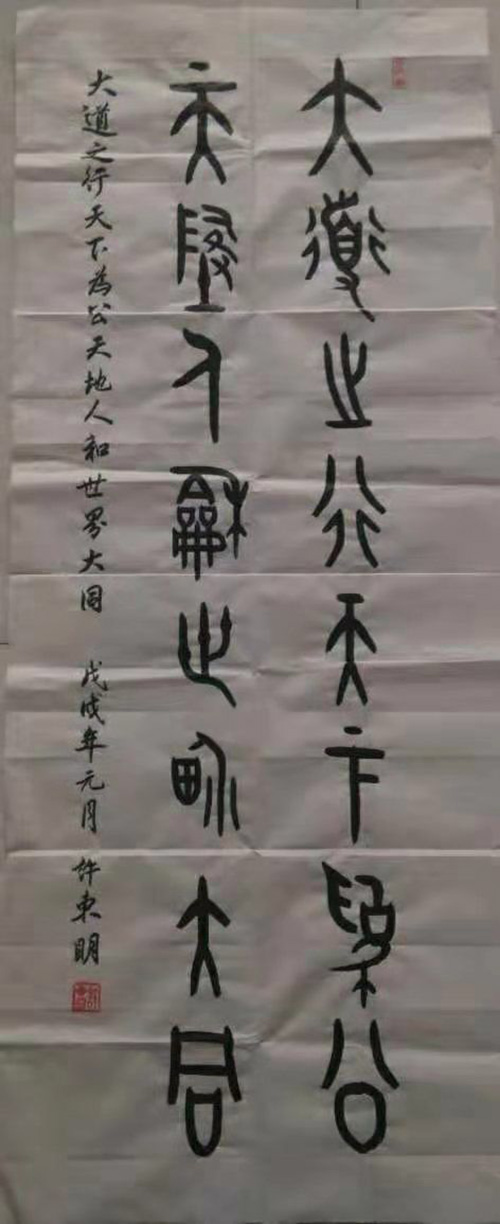 大道之行天下為公
天地人和世界大同
大道之行天下为公天地人和世界大同 戊戌年元月 许东明